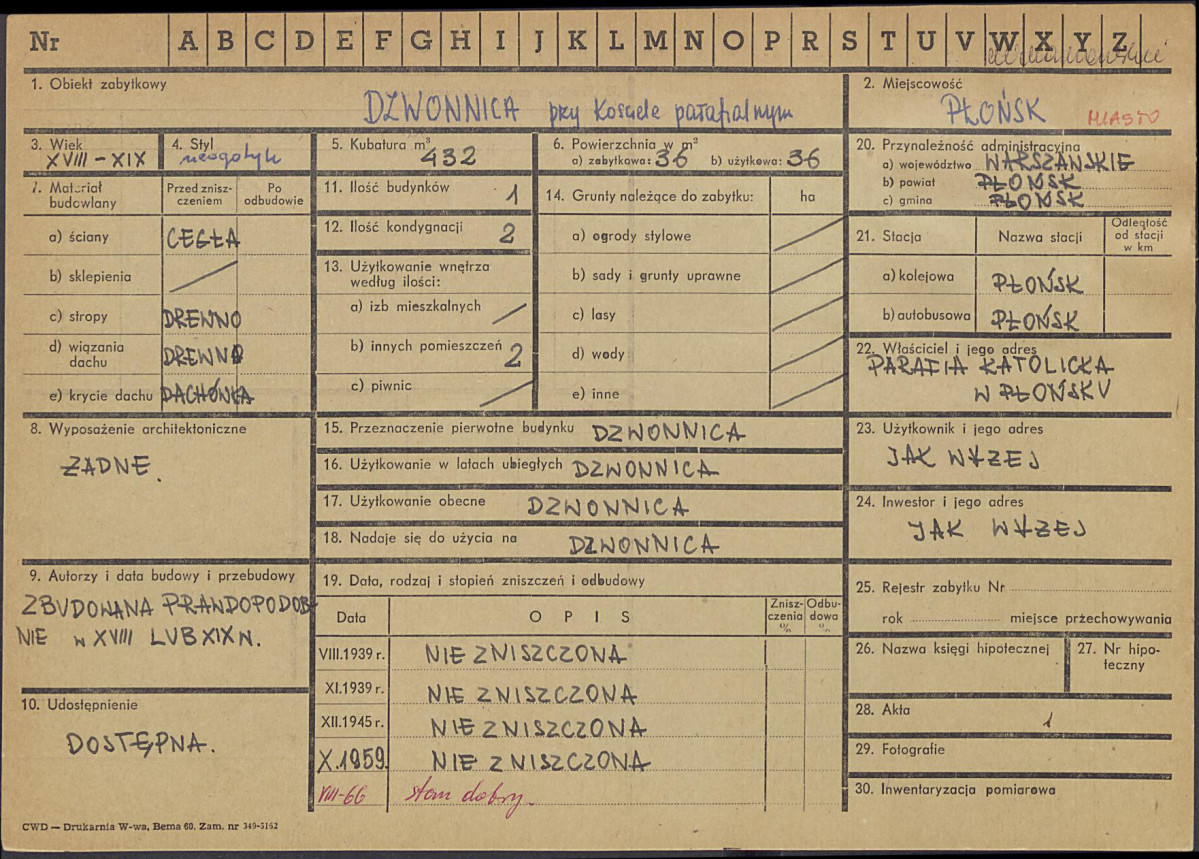 Nr A B C D E F G H I J K L M N O P R S T U V W X Y Z
1. Obiekt zabytkowy
DZWONNICA przy Kościele parafialnym
2. Miejscowość
PŁOŃSK MIASTO
3. Wiek
XVIII – XIX
4. Styl
neogotyk
5. Kubatura m³
432
6. Powierzchnia w m²
a) zabytkowa: 36 b) użytkowa: 36
20. Przynależność administracyjna
a) województwo WARSZAWSKIE
b) powiat PŁOŃSK
c) gmina PŁOŃSK
7. Materiał budowlany
Przed zniszczeniem
Po odbudowie
a) ściany CEGŁA
b) sklepienia
c) stropy DREWNO
d) wiązania dachu DREWNO
e) krycie dachu DACHÓWKA
11. Ilość budynków 1
12. Ilość kondygnacji 2
13. Użytkowanie wnętrza
według ilości:
a) izb mieszkalnych
b) innych pomieszczeń 2
c) piwnic
14. Grunty należące do zabytku: ha
a) ogrody stylowe
b) sady i grunty uprawne
c) lasy
d) wody
e) inne
21. Stacja
Nazwa stacji
Odległość
od stacji
w km
a) kolejowa PŁOŃSK
b) autobusowa PŁOŃSK
22. Właściciel i jego adres
PARAFIA KATOLICKA
W PŁOŃSKU
8. Wyposażenie architektoniczne
ŻADNE.
15. Przeznaczenie pierwotne budynku DZWONNICA
16. Użytkowanie w latach ubiegłych DZWONNICA
17. Użytkowanie obecne DZWONNICA
18. Nadaje się do użycia na DZWONNICA
23. Użytkownik i jego adres
JAK WYŻEJ
24. Inwestor i jego adres
JAK WYŻEJ
9. Autorzy i data budowy i przebudowy
ZBUDOWANA PRAWDOPODOB-
NIE W XVIII LUB XIX W.
10. Udostępnienie
DOSTĘPNA.
19. Data, rodzaj i stopień zniszczeń i odbudowy
Data
O P I S
Zniszczenia %
Odbudowa %
VIII.1939 r. NIE ZNISZCZONA
XI.1939 r. NIE ZNISZCZONA
XII.1945 r. NIE ZNISZCZONA
X.1959. NIE ZNISZCZONA
VIII-66 stan dobry.
25. Rejestr zabytku Nr
rok miejsce przechowywania
26. Nazwa księgi hipotecznej
27. Nr hipoteczny
28. Akta 1
29. Fotografie
30. Inwentaryzacja pomiarowa
CWD — Drukarnia W-wa, Bema 60. Zam. nr 349-5162